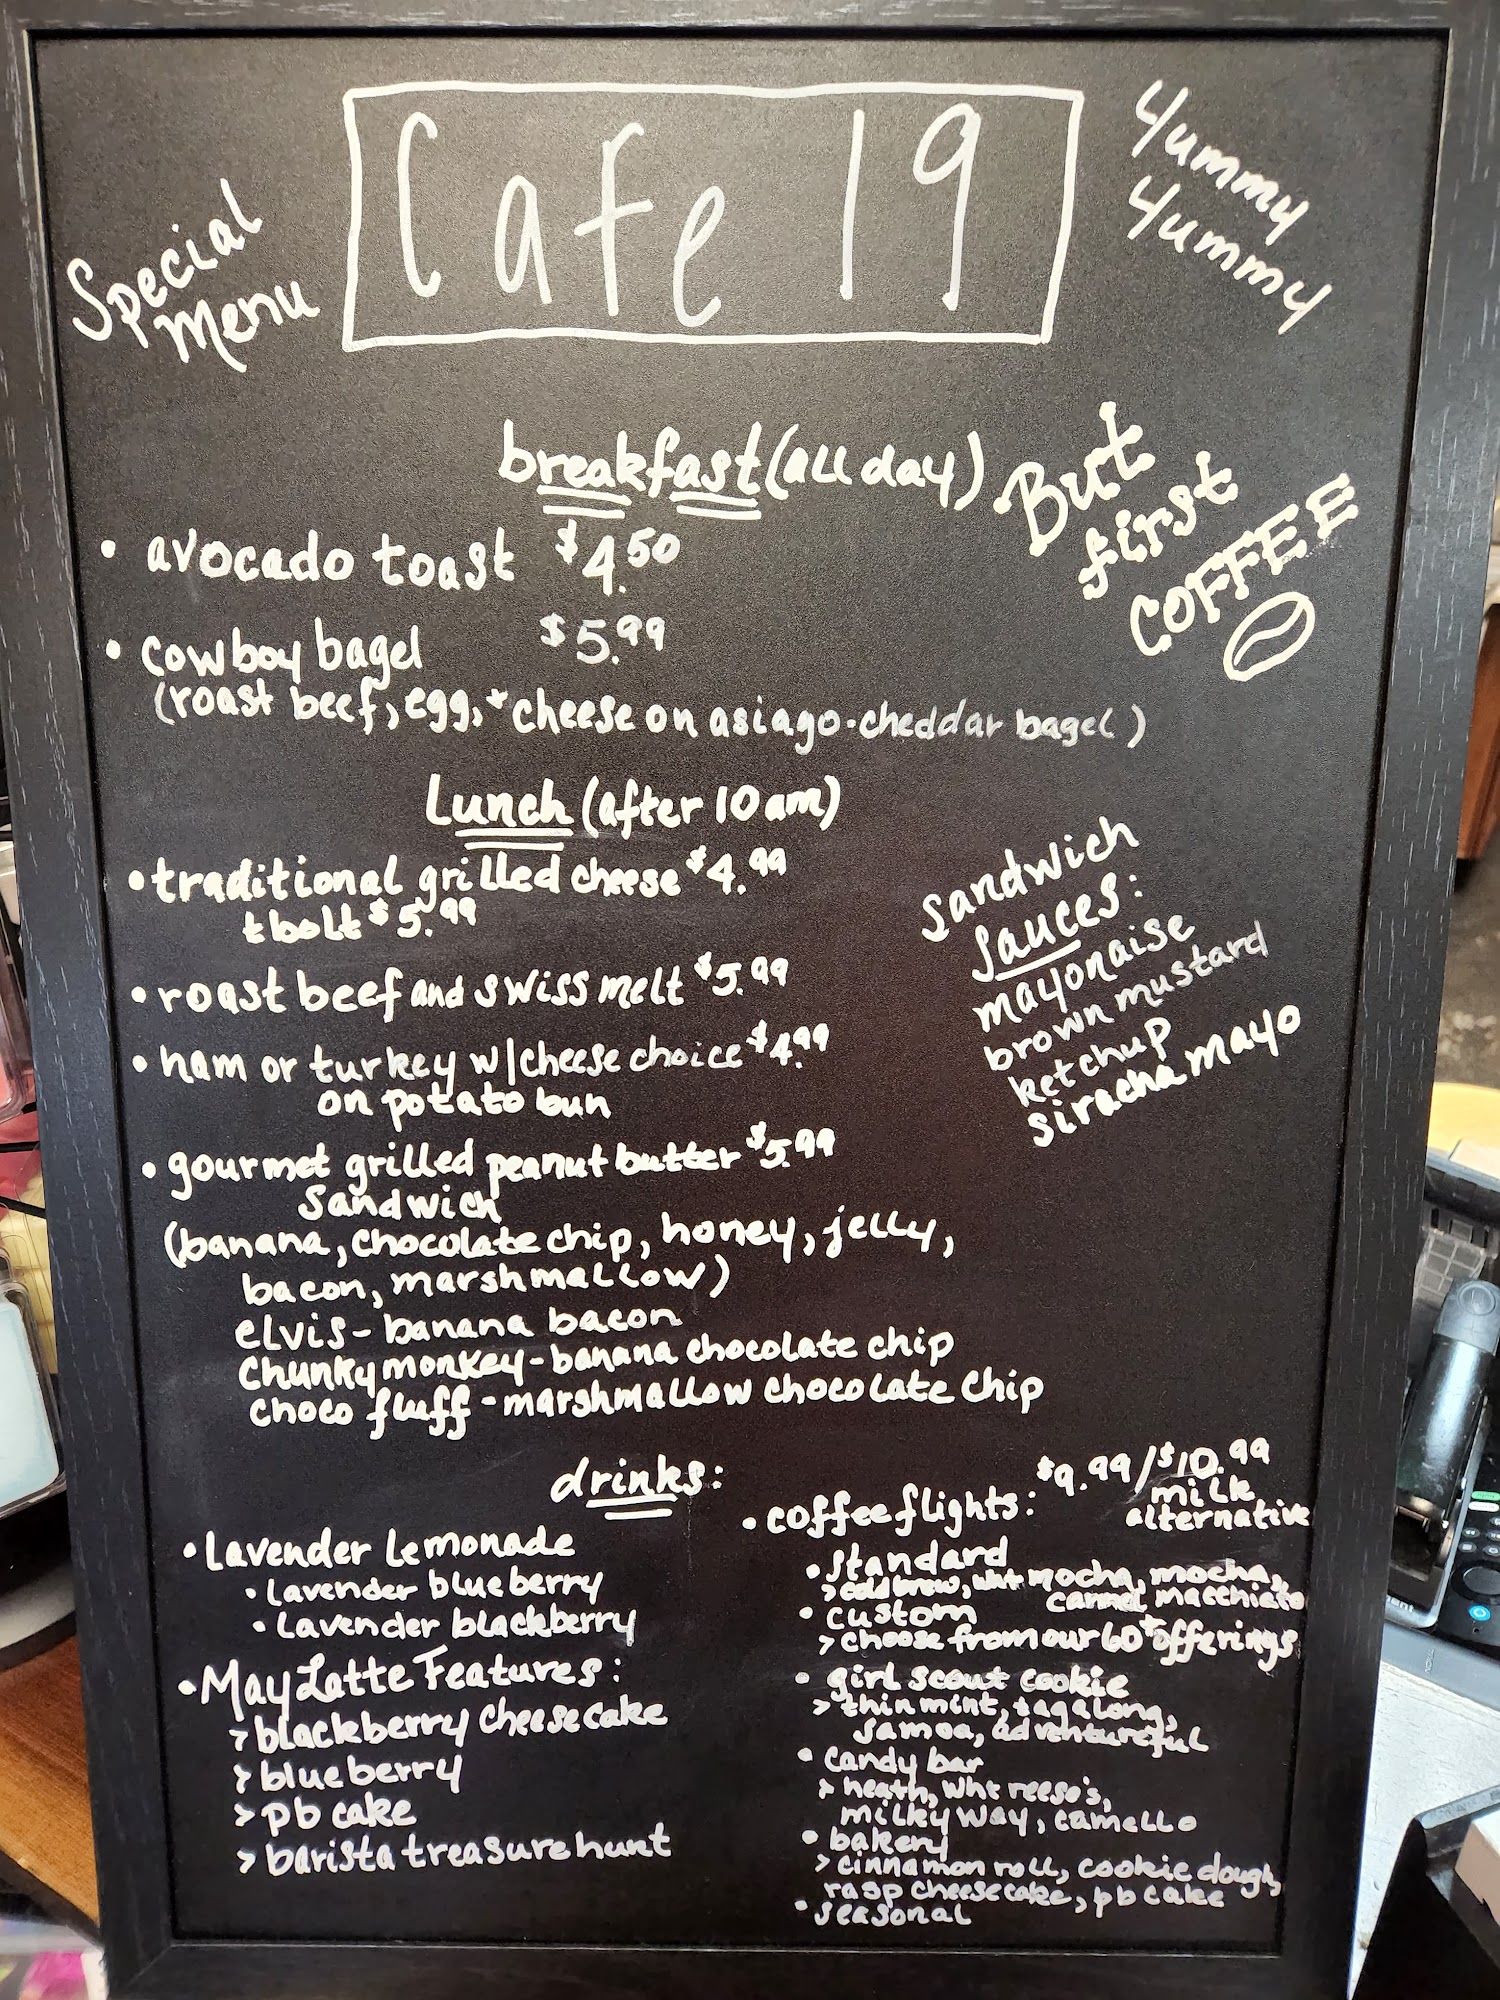 Special
Menu
Cafe 19
Yummy
Yummy
breakfast (all day)
But
first
COFFEE
• avocado toast $4.50
• cowboy bagel $5.99
(roast beef, egg, + cheese on asiago-cheddar bagel)
Lunch (after 10am)
• traditional grilled cheese $4.99
tbolt $5.99
• roast beef and swiss melt $5.99
• ham or turkey w/cheese choice $4.99
on potato bun
• gourmet grilled peanut butter $5.99
Sandwich
(banana, chocolate chip, honey, jelly,
bacon, marshmallow)
elvis - banana bacon
Chunky monkey - banana chocolate chip
choco fluff - marshmallow chocolate chip
Sandwich
Sauces:
mayonaise
brown mustard
ketchup
siracha mayo
drinks:
• Lavender Lemonade
• Lavender blueberry
• Lavender blackberry
• May Latte Features:
> blackberry cheesecake
> blueberry
> pb cake
> barista treasure hunt
• coffee flights: $9.99/$10.99
milk
alternative
• standard
> cold brew, wht mocha, mocha,
carmel macchiato
• custom
> choose from our 60+ offerings
• girl scout cookie
> thin mint, tagalong,
samoa, adventureful
• candy bar
> heath, wht reese's,
milky way, camello
• bakery
> cinnamon roll, cookie dough,
rasp cheesecake, pb cake
• seasonal